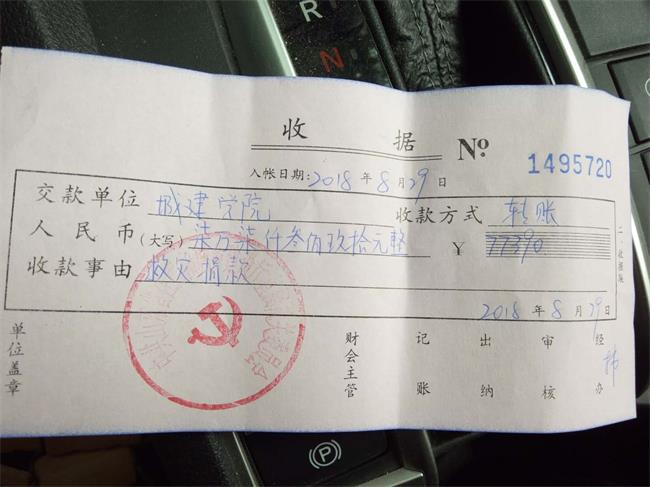 R
N
收 据 № 1495720
入帐日期:2018年8月29日
交款单位 城建学院 收款方式 转账
人民币(大写)柒万柒仟叁佰玖拾元整 ¥ 77390
收款事由 救灾捐款
2018年8月29日
单位盖章 财会主管 记账 出纳 审核 经办
P